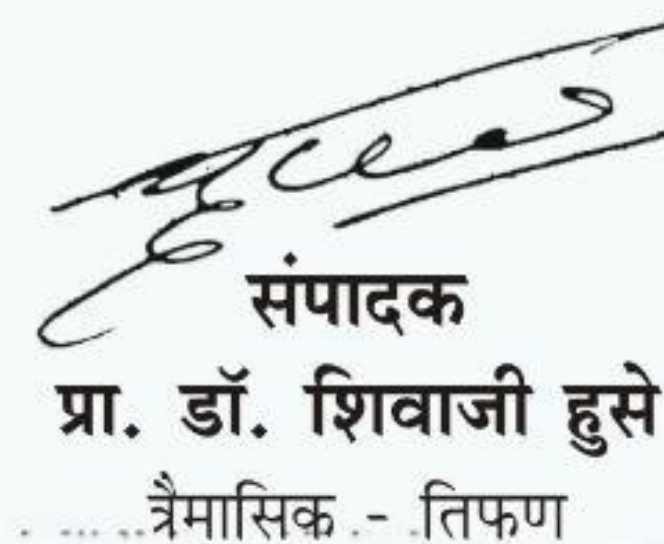 संपादक
प्रा. डॉ. शिवाजी हुसे
त्रैमासिक - तिफण